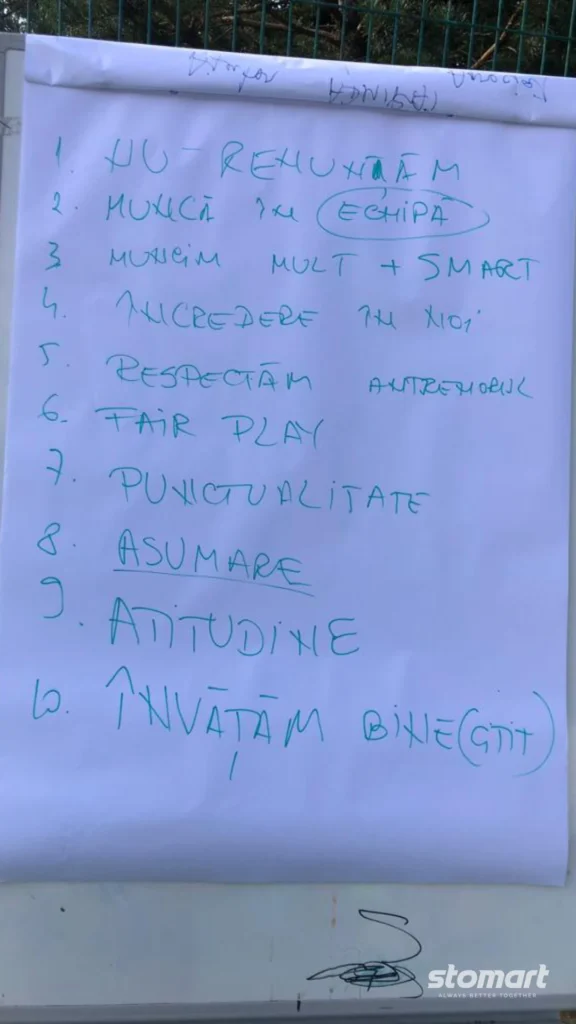 1. NU-RENUNȚĂM
2. MUNCĂ ÎN ECHIPĂ
3 MUNCIM MULT + SMART
4. ÎNCREDERE ÎN NOI
5. RESPECTĂM ANTRENORUL
6. FAIR PLAY
7. PUNCTUALITATE
8. ASUMARE
9. ATITUDINE
10. ÎNVĂȚĂM BINE (GTIT)
stomart
ALWAYS BETTER TOGETHER